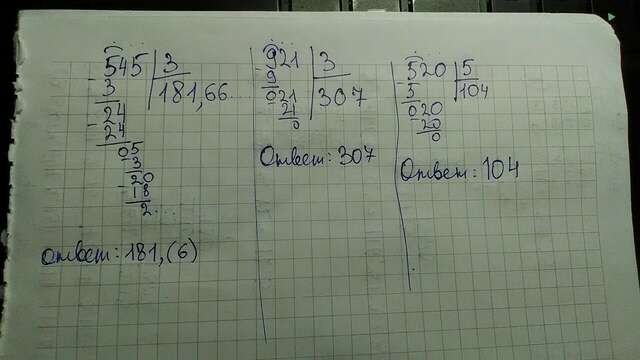 545 3
3 181,66...
24
24
05
3
20
18
2...
ответ: 181,(6)
921 3
9 307
021
21
0
Ответ: 307
520 5
5 104
020
20
0
Ответ: 104